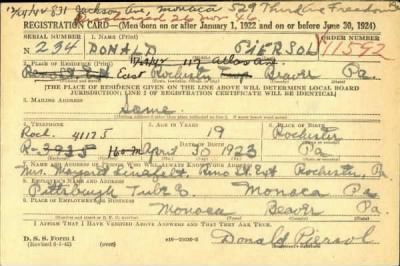 7/24/44 831 Jackson Ave, Monaca 529 Third Ave Freedom
26 Nov 46
REGISTRATION CARD—(Men born on or after January 1, 1922 and on or before June 30, 1924)
SERIAL NUMBER 1. NAME (Print) ORDER NUMBER
N 294 DONALD PIERSOL 11592
2. PLACE OF RESIDENCE (Print)
East Rochester Beaver Pa.
[THE PLACE OF RESIDENCE GIVEN ON THE LINE ABOVE WILL DETERMINE LOCAL BOARD
JURISDICTION; LINE 2 OF REGISTRATION CERTIFICATE WILL BE IDENTICAL]
3. MAILING ADDRESS
Same
4. TELEPHONE 5. AGE IN YEARS 6. PLACE OF BIRTH
Roch. 4117J 19 Rochester
DATE OF BIRTH
R-3935 April 30 1923 Pa
7. NAME AND ADDRESS OF PERSON WHO WILL ALWAYS KNOW YOUR ADDRESS
Mrs. East Rochester, Pa
8. EMPLOYER'S NAME AND ADDRESS
Pittsburgh Tube Co Monaca Pa
9. PLACE OF EMPLOYMENT OR BUSINESS
Monaca Beaver Pa
I AFFIRM THAT I HAVE VERIFIED ABOVE ANSWERS AND THAT THEY ARE TRUE.
D. S. S. Form 1
Donald Piersol